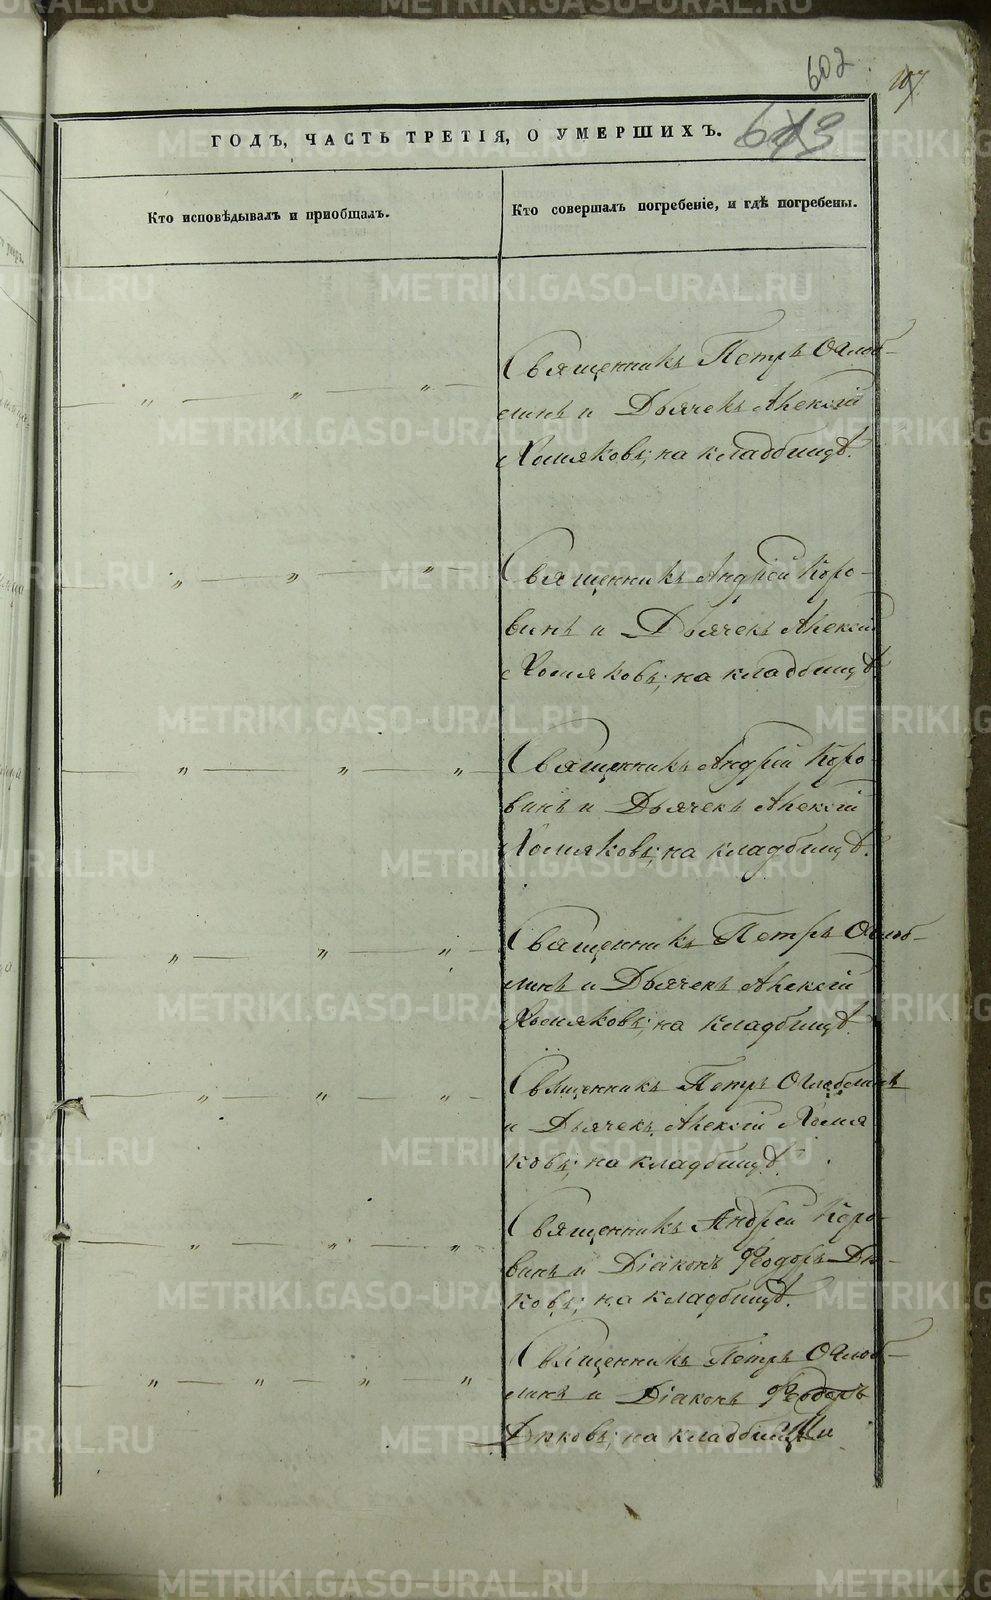 602
107
613
ГОДЪ, ЧАСТЬ ТРЕТІЯ, О УМЕРШИХЪ.
Кто исповѣдывалъ и пріобщалъ.
Кто совершалъ погребеніе, и гдѣ погребены.
Священникъ Петръ Оглоб-
линъ и Дьячекъ Алексій
Хомяковъ; на кладбищѣ.
Священникъ Андрей Коро-
винъ и Дьячекъ Алексій
Хомяковъ; на кладбищѣ.
Священникъ Андрей Коро-
винъ и Дьячекъ Алексій
Хомяковъ; на кладбищѣ.
Священникъ Петръ Оглоб-
линъ и Дьячекъ Алексій
Хомяковъ; на кладбищѣ.
Священникъ Петръ Оглоблинъ
и Дьячекъ Алексій Хомя
ковъ; на кладбищѣ.
Священникъ Андрей Коро-
винъ и Діаконъ Ѳеодоръ
ковъ; на кладбищѣ.
Священникъ Петръ Оглоб-
линъ и Діаконъ Ѳеодоръ
на кладбищѣ
METRIKI.GASO-URAL.RU